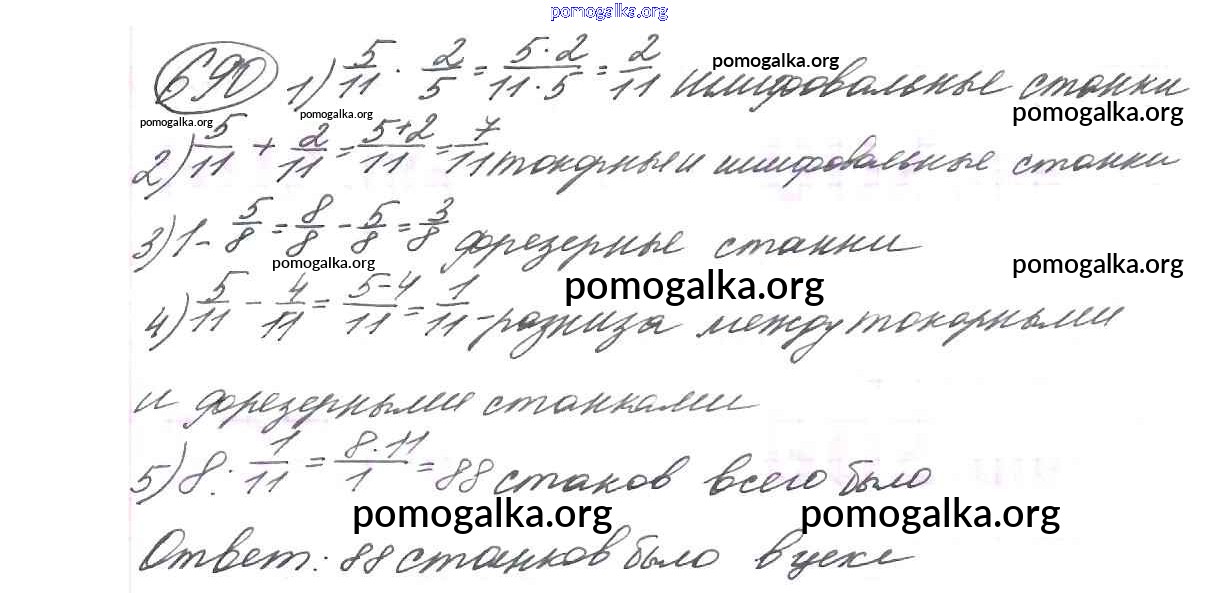 pomogalka.org
690 1) 5/11 · 2/5 = 5·2/11·5 = 2/11 шлифовальные станки
pomogalka.org
pomogalka.org
pomogalka.org
pomogalka.org
2) 5/11 + 2/11 = 5+2/11 = 7/11 токарные и шлифовальные станки
3) 1 - 5/8 = 8/8 - 5/8 = 3/8 фрезерные станки
pomogalka.org
pomogalka.org
pomogalka.org
4) 5/11 - 4/11 = 5-4/11 = 1/11 - разница между токарными
и фрезерными станками
5) 8 : 1/11 = 8·11/1 = 88 станов всего было
pomogalka.org
pomogalka.org
Ответ: 88 станков было в цехе